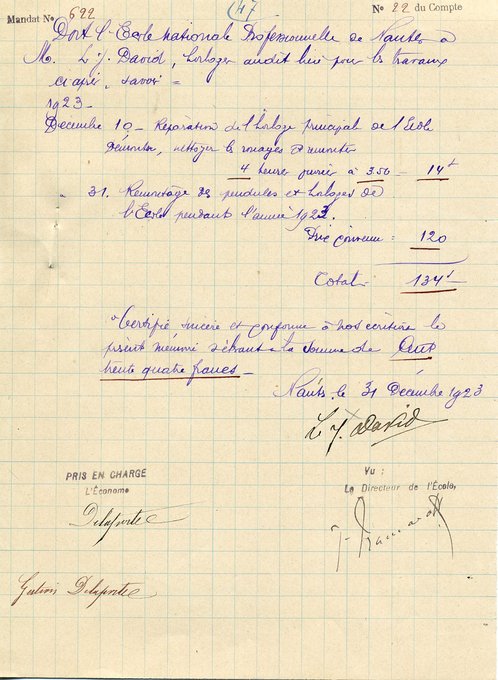 Mandat No 622
47
No 22 du Compte
Doit l'Ecole Nationale Professionnelle de Nantes à
M. L. J. David, horloger audit lieu pour les travaux
ci après, savoir =
1923 -
Décembre 10 - Réparation de l'horloge principale de l'Ecole
Démonter, nettoyer les rouages et remonter
4 heures ouvrier à 3.50 - 14f
" 31. Remontage des pendules et horloges de
l'Ecole pendant l'année 1923.
Prix convenu = 120
Total - 134f -
Certifié sincère et conforme à nos écritures le
présent mémoire s'élevant à la somme de Cent
trente quatre francs -
Nantes, le 31 Décembre 1923
L. J. David
PRIS EN CHARGE
L'Économe
Delaporte
Vu :
Le Directeur de l'École,
Delaporte